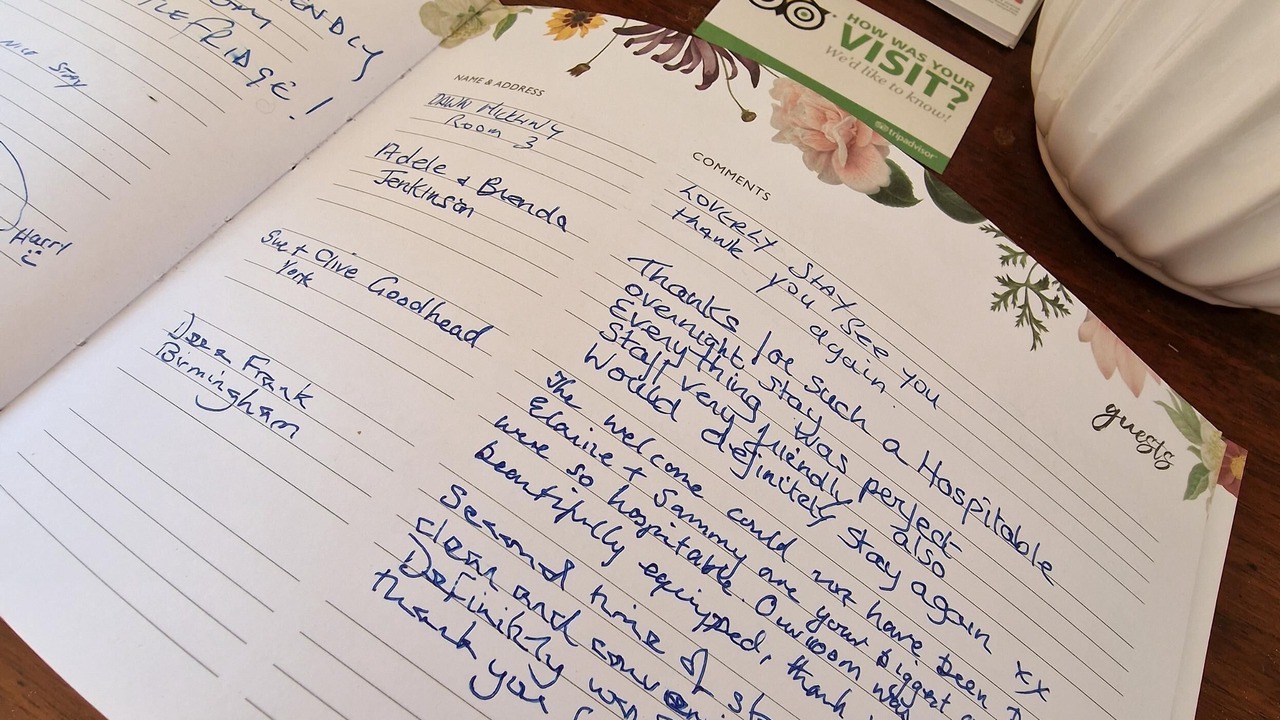 ENDLY
FRIDGE!
Nice Stay
Harry
HOW WAS YOUR
VISIT?
We'd like to know!
tripadvisor
NAME & ADDRESS
COMMENTS
Room 3
LOVERLY STAY SEE YOU
thank you again.
Adele & Brenda
Jenkinson
Thanks for such a Hospitable
overnight stay
Everything was perfect
Staff very friendly also
Would definitely stay again xx
Sue + Clive Goodhead
York
The welcome could not have been
Elaine + Sammy are your biggest
were so hospitable. Our room was
beautifully equipped, thank
Frank
Birmingham
Second time of
clean and
Definitely
thank you
guests